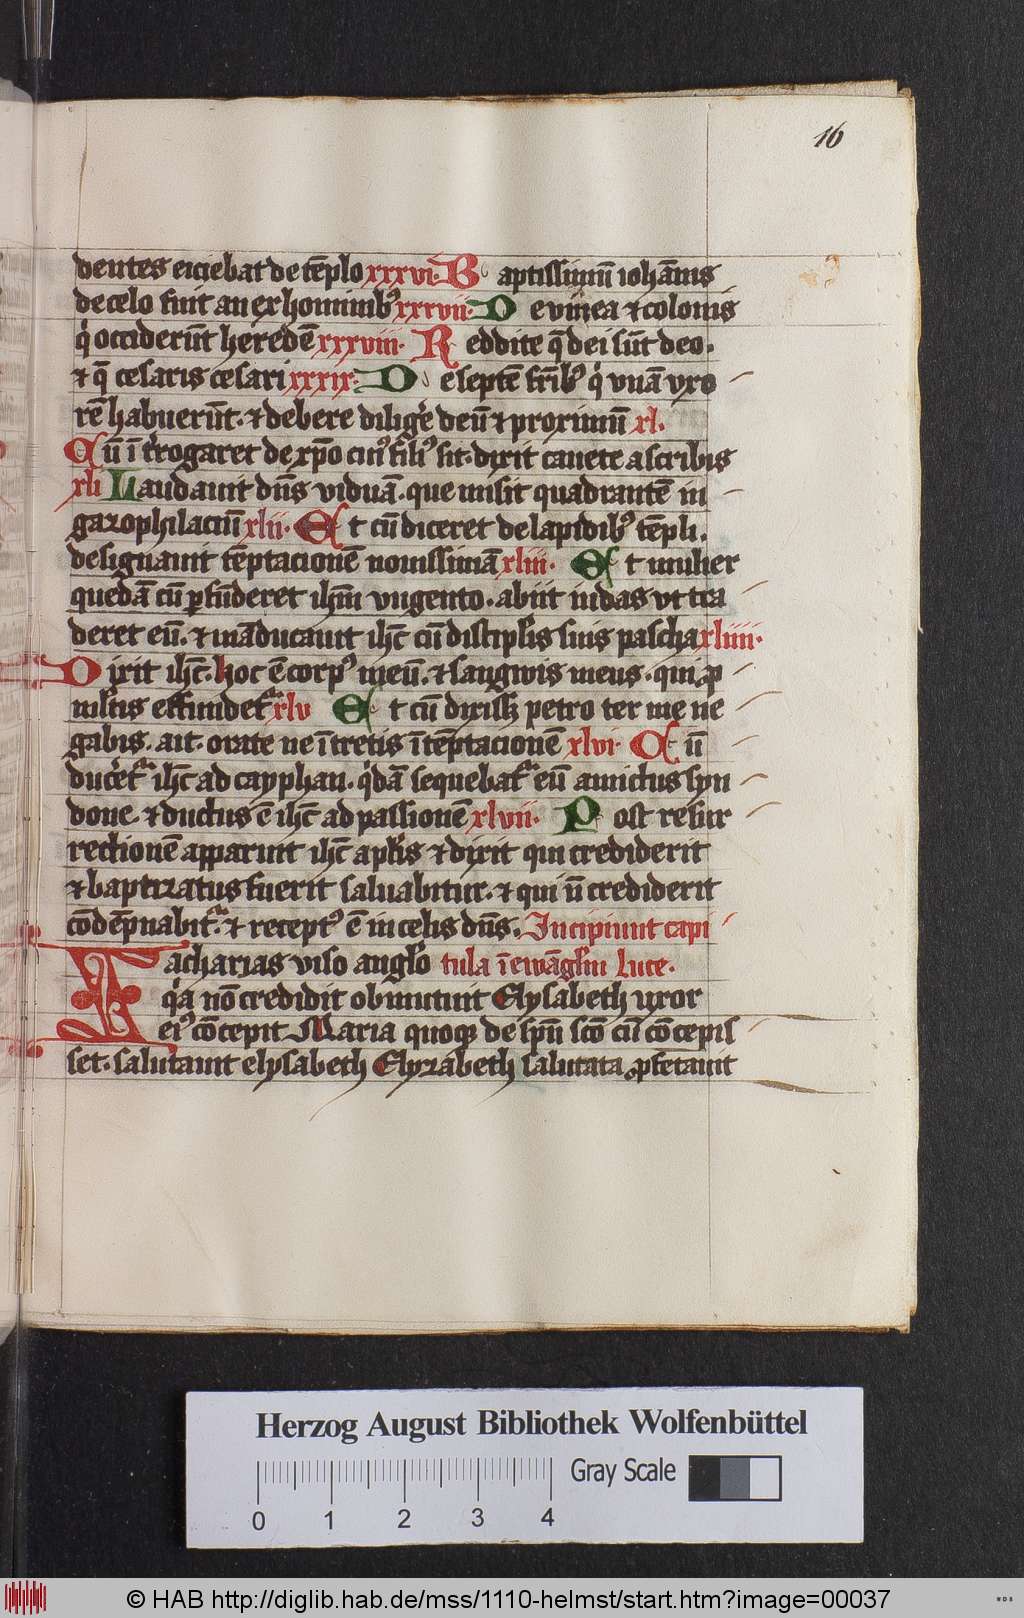 16
dentes eiciebat de tēplo xxxvi· Baptissimū iohānis
de celo fuit an ex hominibꝰ xxxvii· De vinea ⁊ colonis
q̇ occiderūt heredē xxxviii· Reddite q̄ dei sūt deo·
⁊ q̄ cesaris cesari xxxix· De septē frībꝰ q̇ vnā vxo
rē habuerūt· ⁊ debere dilige̾ deū ⁊ proximū xl·
Cū ī t̾rogaret de xp̄o cuiꝰ filiꝰ sit· dixit cauete a scribis
xli Laudauit dn̄s viduā· que misit quadrantē in
gazophilaciū xlii· Et cū diceret de lapidibꝰ tēpli·
designauit tēptacionē nouissimā xliii· Et mulier
quedā cū ꝑfūderet ih̄m vngento· abiit iudas vt tra
deret eū· ⁊ māducauit ih̄c cū discipl̄is suis pascha xliiii·
Dixit ih̄c· hoc ē corpꝰ meū· ⁊ sangwis meus· qui ꝓ
ml̄tis effundet᷑ xlv Et cū dixisꝫ petro ter me ne
gabis· ait· orate ne ītretis ī tēptacionē xlvi· Cū
duce̾t᷑ ih̄c ad cayphan· q̇dā sequebat᷑ eū amictus syn
done· ⁊ ductus ē ih̄c ad passionē xlvii· Post resur
rectionē apparuit ih̄c apl̄is ⁊ dixit qui crediderit
⁊ baptizatus fuerit saluabitur· ⁊ qui ū crediderit
cōdēpnabit᷑· ⁊ receptꝰ ē in celis dn̄s· Incipiunt capi
Zacharias viso angl̄o tula ī ewāgl̄iū luce·
q̇a nō credidit obmutuit Elysabeth uxor
eiꝰ cōcepit Maria quoqꝫ de sp̄u sc̄o cū cōcepis
set· salutauit elysabeth Elyzabeth salutata ꝓfetauit
Herzog August Bibliothek Wolfenbüttel
Gray Scale
0 1 2 3 4
© HAB http://diglib.hab.de/mss/1110-helmst/start.htm?image=00037